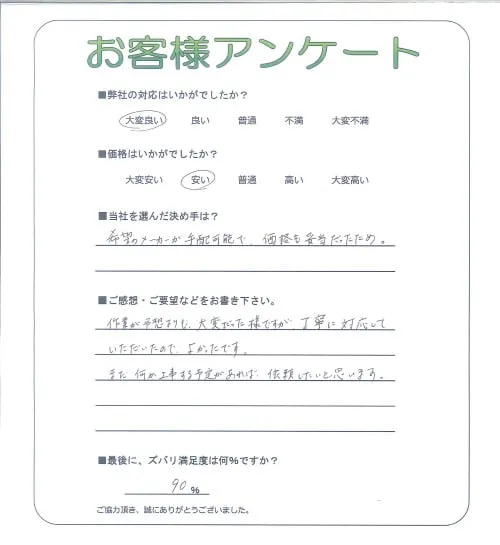 お客様アンケート
■弊社の対応はいかがでしたか？
大変良い 良い 普通 不満 大変不満
■価格はいかがでしたか？
大変安い 安い 普通 高い 大変高い
■当社を選んだ決め手は？
希望のメーカーが手配可能で、価格も妥当だったため。
■ご感想・ご要望などをお書き下さい。
作業が予想よりも、大変だった様ですが、丁寧に対応して
いただいたので、よかったです。
また何か工事する予定があれば、依頼したいと思います。
■最後に、ズバリ満足度は何%ですか？
90 %
ご協力頂き、誠にありがとうございました。